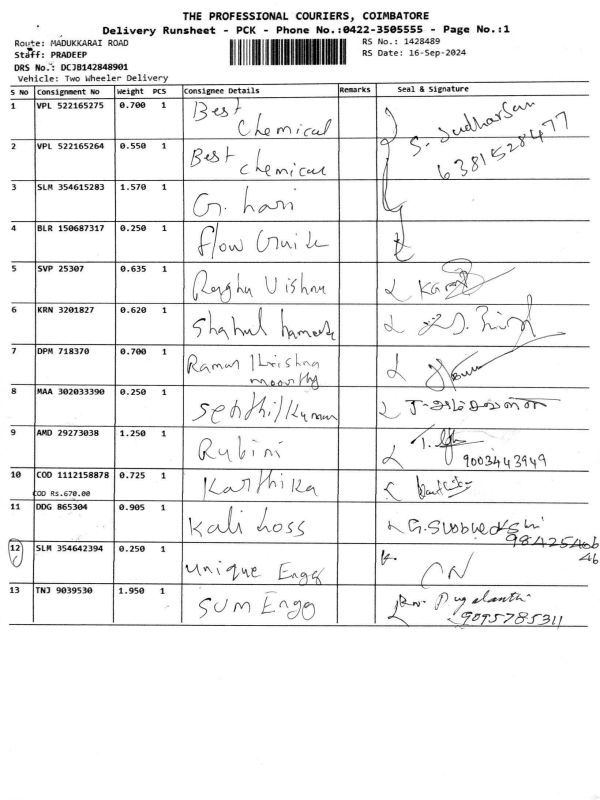 THE PROFESSIONAL COURIERS, COIMBATORE
Delivery Runsheet - PCK - Phone No.:0422-3505555 - Page No.:1
Route: MADUKKARAI ROAD RS No.: 1428489
Staff: PRADEEP RS Date: 16-Sep-2024
DRS No.: DCJB142848901
Vehicle: Two Wheeler Delivery
S No Consignment No Weight PCS Consignee Details Remarks Seal & Signature
1 VPL 522165275 0.700 1 Best Chemical S. Sudharsan
6381528477
2 VPL 522165264 0.550 1 Best chemical
3 SLM 354615283 1.570 1 G. hari
4 BLR 150687317 0.250 1 flow Guide
5 SVP 25307 0.635 1 Raghu Vishnu
6 KRN 3201827 0.620 1 Shahul hameed
7 DPM 718370 0.700 1 Raman Krishna
moorthy
8 MAA 302033390 0.250 1 Senthil Kumar
9 AMD 29273038 1.250 1 Rubini
9003443949
10 COD 1112158878 0.725 1 Karthika
COD Rs.670.00
11 DDG 865304 0.905 1 Kali hoss
98425406
46
12 SLM 354642394 0.250 1 Unique Engg CN
13 TNJ 9039530 1.950 1 SUM Engg Pugalanthi
9095785311